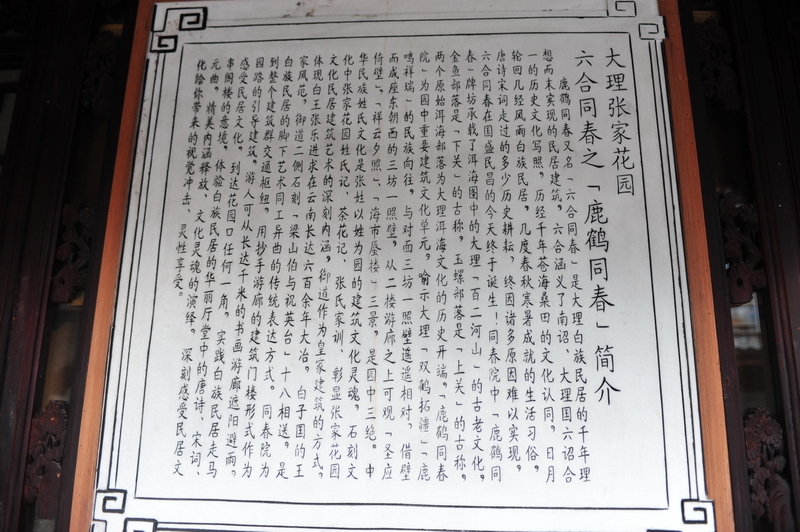 大理张家花园
六合同春之「鹿鹤同春」简介
鹿鹤同春又名「六合同春」是大理白族民居的千年理
想而未实现的民居建筑。六合涵义了南诏、大理国六诏合
一的历史文化写照，历经千年苍海桑田的文化认同，日月
轮回几经风雨白族民居，几度春秋寒暑成就的生活习俗，
唐诗宋词走过的多少历史耕耘，终因诸多原因难以实现，
六合同春在国盛民昌的今天终于诞生！同春院中「鹿鹤同
春」牌坊承载了洱海图中的大理「百二河山」的古老文化，
金鱼部落是「下关」的古称，玉螺部落是「上关」的古称，
两个原始洱海部落为大理洱海文化的历史开端。「鹿鹤同春
院」为园中重要建筑文化单元。喻示大理「双鹤拓疆」「鹿
鸣祥瑞」的民族向往，与对面三坊一照壁遥遥相对，借壁
而成座东朝西的三坊一照壁。从二楼游廊之上可观「圣应
倚壁」，「祥云夕照」，「海市蜃楼」三景，是园中三绝。中
华民族姓氏文化是张姓以姓为园的建筑文化灵魂，石刻文
化中张家花园姓氏记、茶花记、张氏家训、彰显张家花园
文化民居建筑艺术的深刻内涵，御道作为皇家建筑的方式，
体现白王张乐进求在云南长达六百余年大治，白子国的王
家风范，御道二侧石刻「梁山伯与祝英台」十八相送，是
白族民居的脚下艺术同工异曲的传统表达方式。同春院为
到整个建筑群交通枢纽，用抄手游廊的建筑门楼形式作为
园路的引导建筑，游人可从长达千米的书画游廊遮阳避雨，
感受民居文化。到达花园口任何一角，实践白族民居走马
串阁楼的意境，体验白族民居的华丽厅堂中的唐诗、宋词、
元曲，精美内涵释放、文化灵魂的演绎，深刻感受民居文
化给你带来的视觉冲击、灵性享受。